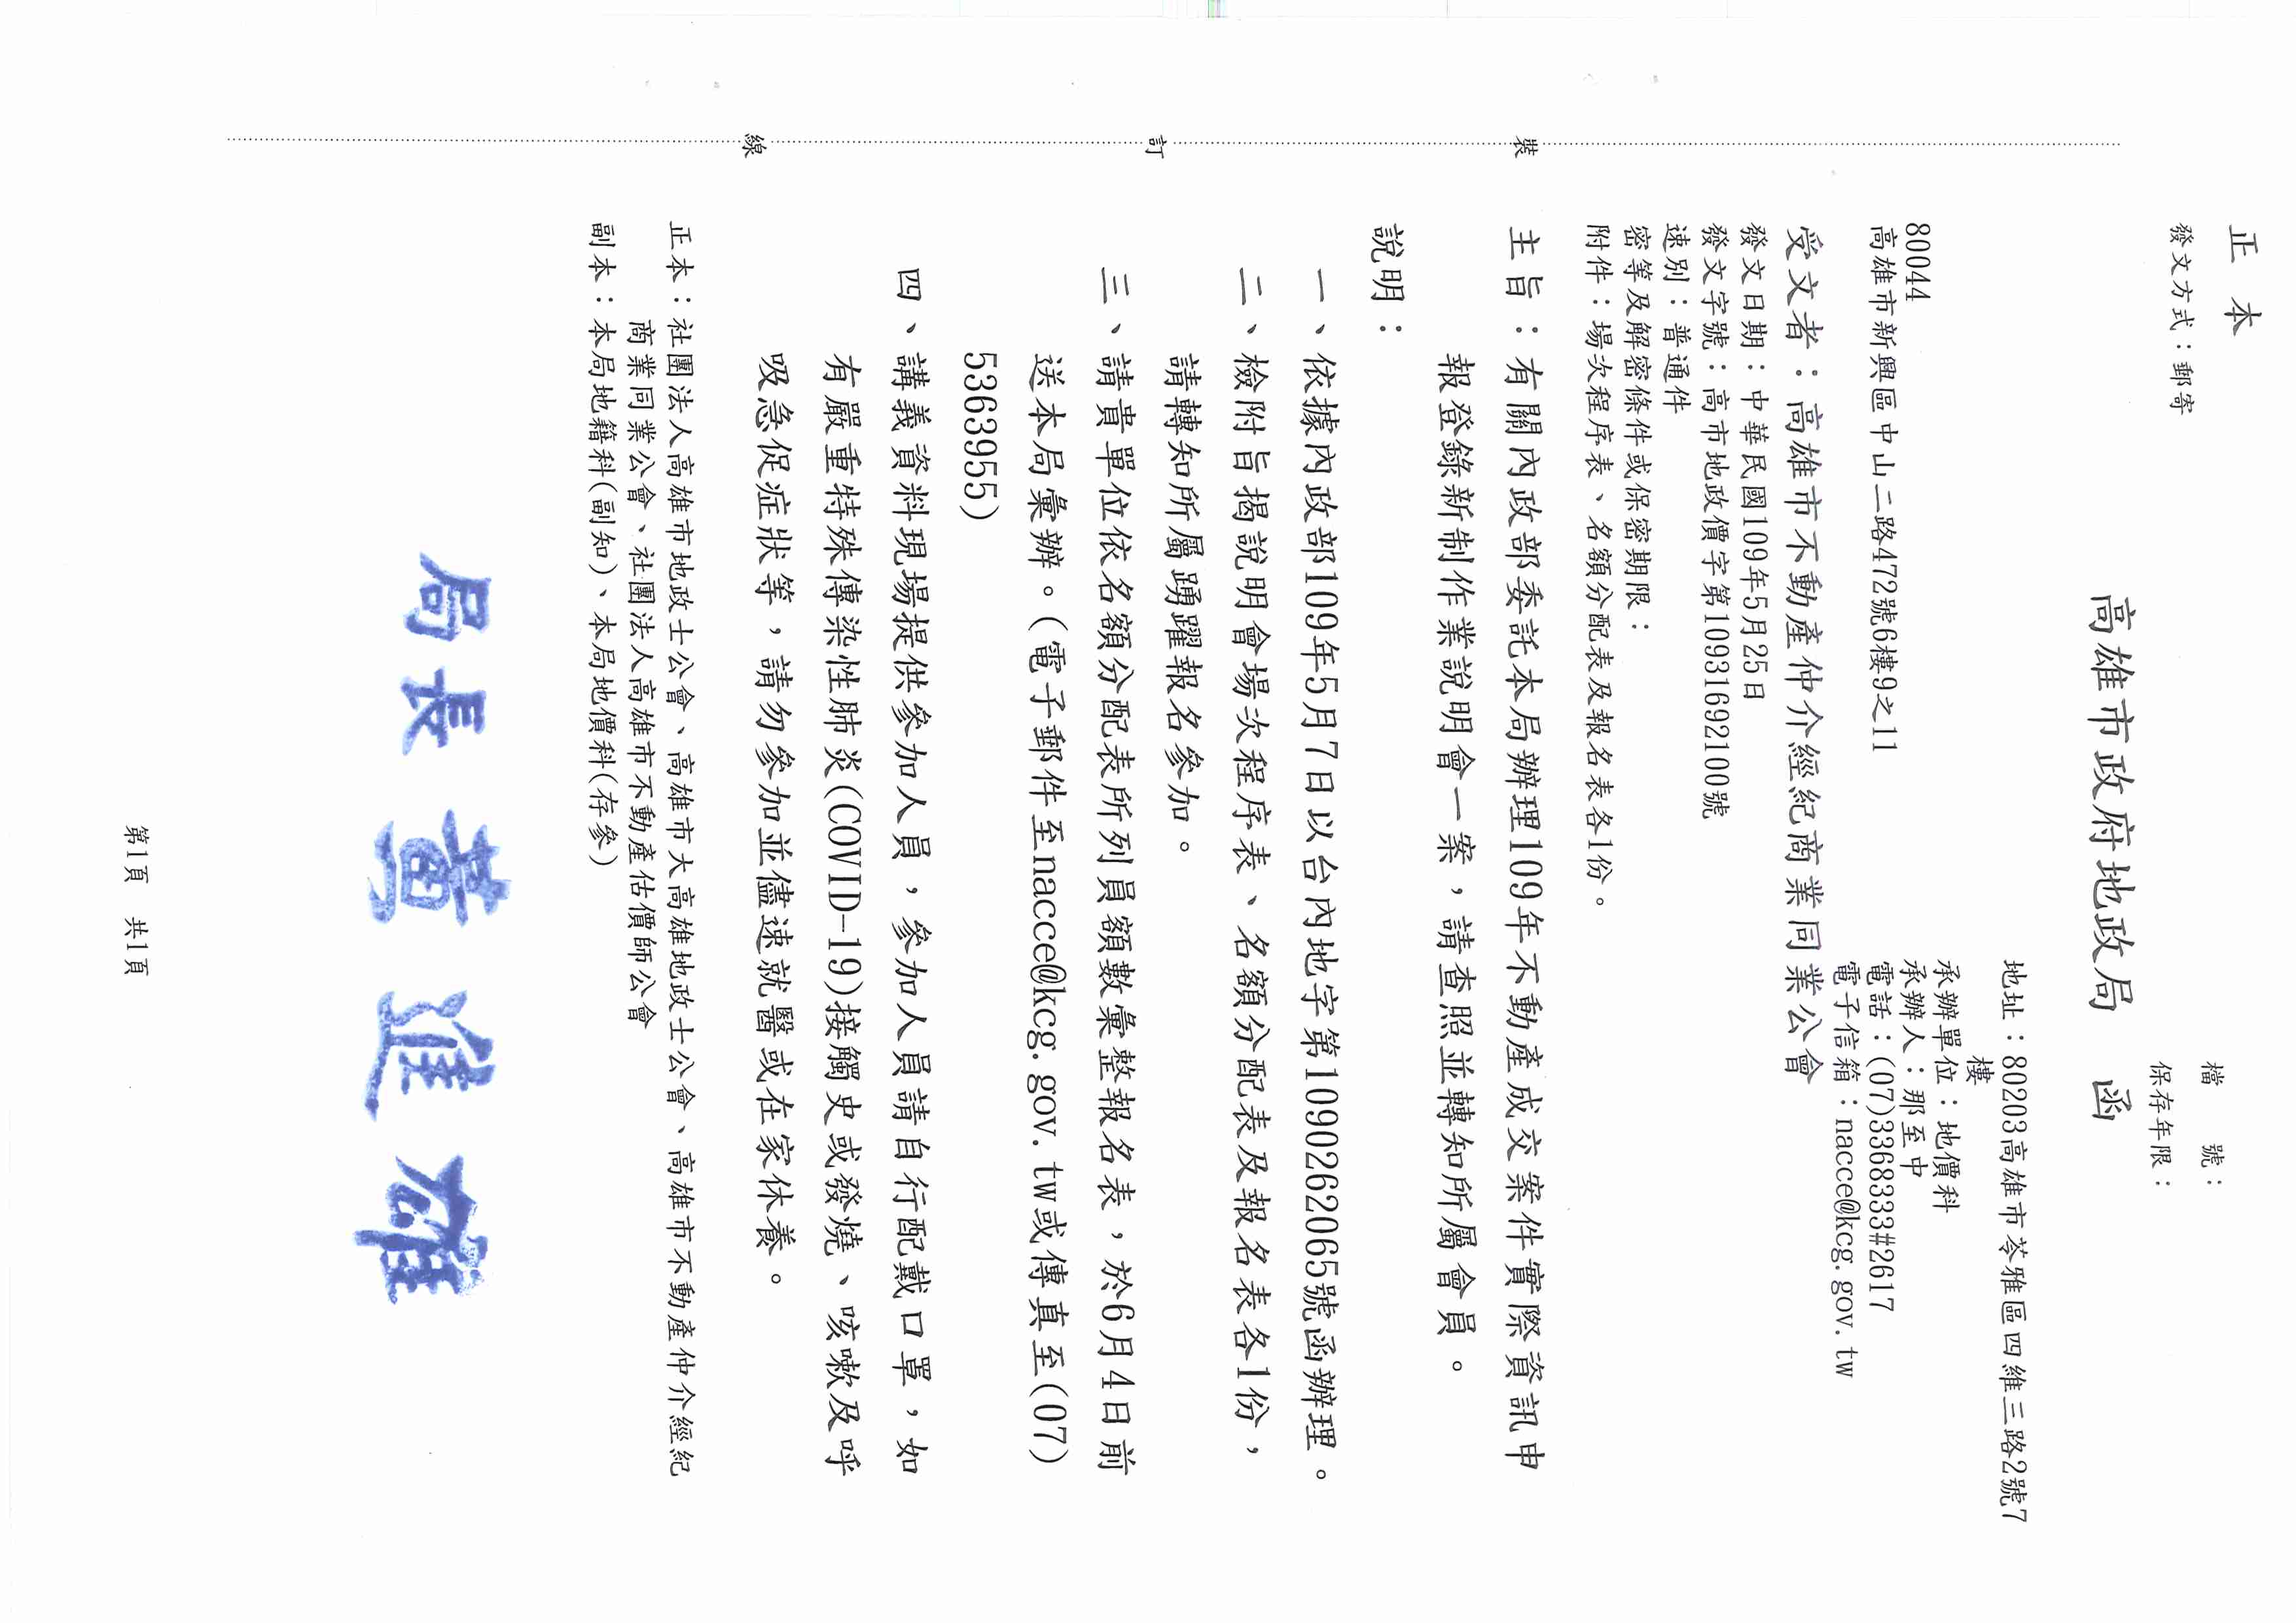 正本
發文方式：郵寄
檔　　號：
保存年限：
高雄市政府地政局　函
地址：80203高雄市苓雅區四維三路2號7
樓
承辦單位：地價科
承辦人：那至中
電話：(07)3368333#2617
電子信箱：nacce@kcg.gov.tw
80044
高雄市新興區中山二路472號6樓9之11
受文者：高雄市不動產仲介經紀商業同業公會
發文日期：中華民國109年5月25日
發文字號：高市地政價字第10931692100號
速別：普通件
密等及解密條件或保密期限：
附件：場次程序表、名額分配表及報名表各1份。
主旨：有關內政部委託本局辦理109年不動產成交案件實際資訊申
報登錄新制作業說明會一案，請查照並轉知所屬會員。
說明：
一、依據內政部109年5月7日以台內地字第1090262065號函辦理。
二、檢附旨揭說明會場次程序表、名額分配表及報名表各1份，
請轉知所屬踴躍報名參加。
三、請貴單位依名額分配表所列員額數彙整報名表，於6月4日前
送本局彙辦。(電子郵件至nacce@kcg.gov.tw或傳真至(07)
5363955)
四、講義資料現場提供參加人員，參加人員請自行配戴口罩，如
有嚴重特殊傳染性肺炎(COVID-19)接觸史或發燒、咳嗽及呼
吸急促症狀等，請勿參加並儘速就醫或在家休養。
正本：社團法人高雄市地政士公會、高雄市大高雄地政士公會、高雄市不動產仲介經紀
商業同業公會、社團法人高雄市不動產估價師公會
副本：本局地籍科(副知)、本局地價科(存參)
局長黃進雄
裝
訂
線
第1頁　共1頁